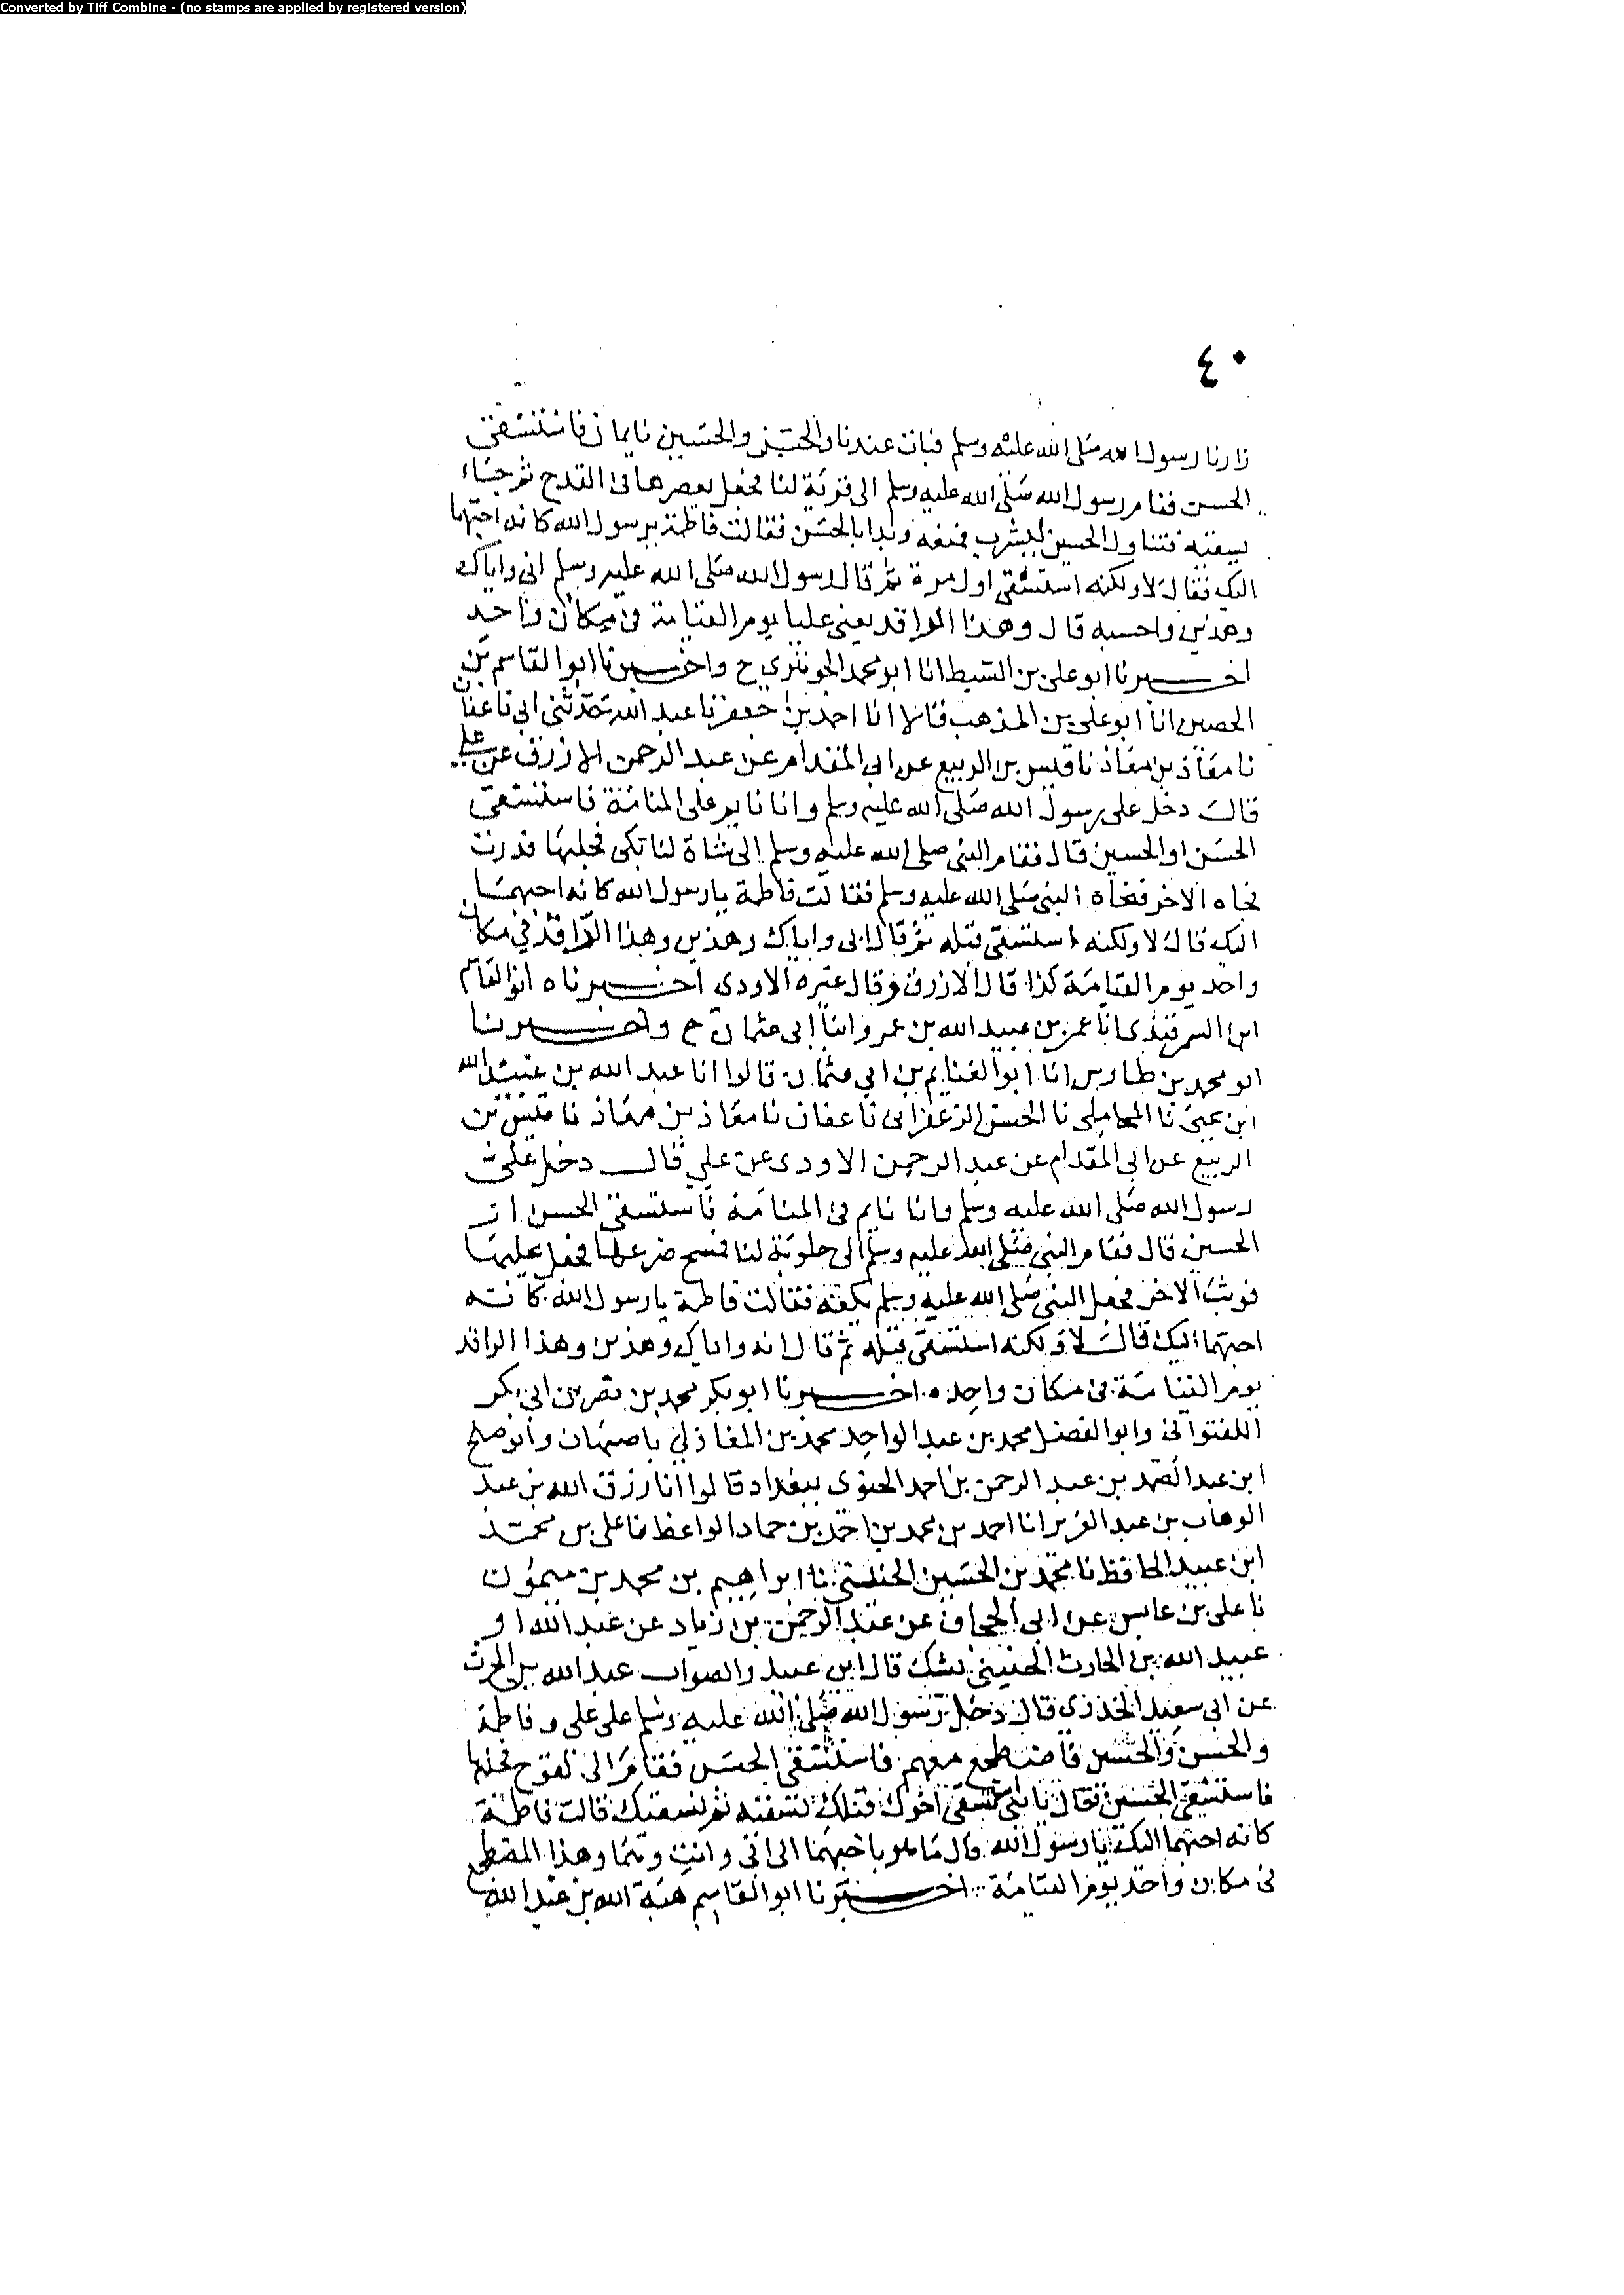 Converted by Tiff Combine - (no stamps are applied by registered version)
٤٠
زارنا رسول الله صلى الله عليه وسلم فبات عندنا والحسن والحسين نايمان فاستسقى
الحسن فقام رسول الله صلى الله عليه وسلم الى قربة لنا فجعل يعصرها في القدح ثم جاء
يسقيه فتناول الحسين ليشرب فمنعه وبدا بالحسن فقالت فاطمة يرسول الله كانه احبهما
اليك فقال لا ولكنه استسقى اول مرة ثم قال رسول الله صلى الله عليه وسلم اني واياك
وهذين واحسبه قال وهذا الراقد يعني عليا يوم القيامة في مكان واحد
اخبرنا ابو علي بن السبط انا ابو محمد الجوهري ح واخبرنا ابو القاسم بن
الحصين انا ابو علي بن المذهب قالا انا احمد بن جعفر نا عبد الله حدثني ابي نا عفان
نا معاذ بن معاذ نا قيس بن الربيع عن ابي المقدام عن عبد الرحمن الازرق عن علي
قال دخل علي رسول الله صلى الله عليه وسلم وانا نايم على المنامة فاستسقى
الحسن او الحسين قال فقام النبي صلى الله عليه وسلم الى شاة لنا بكى فحلبها فدرت
فجاه الاخر فنحاه النبي صلى الله عليه وسلم فقالت فاطمة يا رسول الله كانه احبهما
اليك قال لا ولكنه استسقى قبله ثم قال اني واياك وهذين وهذا الراقد في مكان
واحد يوم القيامة كذا قال الازرق وقال غيره الاودي اخبرناه ابو القاسم
ابن السمرقندي انا عمر بن عبيد الله بن عمر وابنا ابي عثمان ح واخبرنا
ابو محمد بن طاوس انا ابو الغنايم بن ابي عثمان قالوا انا عبد الله بن عبيد الله
ابن يحيى نا المحاملي نا الحسن الزعفراني نا عفان نا معاذ بن معاذ نا قيس بن
الربيع عن ابي المقدام عن عبد الرحمن الاودي عن علي قال دخل علي
رسول الله صلى الله عليه وسلم وانا نايم في المنامة فاستسقى الحسن او
الحسين قال فقام النبي صلى الله عليه وسلم الى حلوبة لنا فمسح ضرعها فجعل يحلبها
فوثب الاخر فجعل النبي صلى الله عليه وسلم يكفه فقالت فاطمة يا رسول الله كانه
احبهما اليك قال لا ولكنه استسقى قبله ثم قال انه واياك وهذين وهذا الراقد
يوم القيامة في مكان واحد ه اخبرنا ابو بكر محمد بن نصر بن ابي بكر
اللفتواني وابو الفضل محمد بن عبد الواحد محمد بن المغازلي باصبهان وابو صلح
ابن عبد الصمد بن عبد الرحمن بن احمد الحنوي ببغداد قالوا انا رزق الله بن عبد
الوهاب بن عبد العزيز انا احمد بن محمد بن احمد بن حماد الواعظ نا علي بن محمد
ابن عبيد الحافظ نا محمد بن الحسين الحنيني نا ابراهيم بن محمد بن ميمون
نا علي بن عابس عن ابي الجحاف عن عبد الرحمن بن زياد عن عبد الله او
عبيد الله بن الحارث الحنيني يشك قال ابن عبيد والصواب عبد الله بن الحرث
عن ابي سعيد الخدري قال دخل رسول الله صلى الله عليه وسلم على علي وفاطمة
والحسن والحسين فاضطجع معهم فاستسقى الحسن فقام الى لقوح فحلبها
فاستسقى الحسين فقال يا بني استسقى اخوك قبلك نسقيه ثم نسقيك قالت فاطمة
كانه احبهما اليك يا رسول الله قال ما هو باحبهما الي اني وانت وهما وهذا المضطجع
في مكان واحد يوم القيامة اخبرنا ابو القاسم هبة الله بن عبد الله